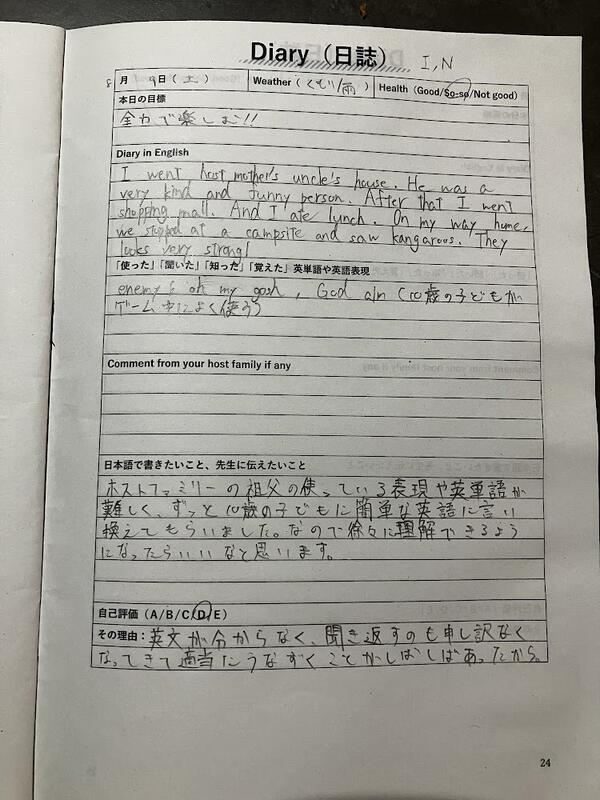 Diary（日誌） I, N
8月 9日（土） Weather（くもり/雨） Health (Good/So-so/Not good)
本日の目標
全力で楽しむ!!
Diary in English
I went host mother's uncle's house. He was a
very kind and funny person. After that I went
shopping mall. And I ate lynch. On my way home,
we stopped at a campsite and saw kangaroos. They
looks very strong!
「使った」「聞いた」「知った」「覚えた」英単語や英語表現
enemy oh my gosh, God (10歳の子どもが
ゲーム中によく使う)
Comment from your host family if any
日本語で書きたいこと、先生に伝えたいこと
ホストファミリーの祖父の使っている表現や英単語が
難しく、ずっと10歳の子どもに簡単な英語に言い
換えてもらいました。なので徐々に理解できるよう
になったらいいなと思います。
自己評価（A/B/C/D/E）
その理由：英文が分からなく、聞き返すのも申し訳なく
なってきて適当にうなずくことがしばしばあったから。
24